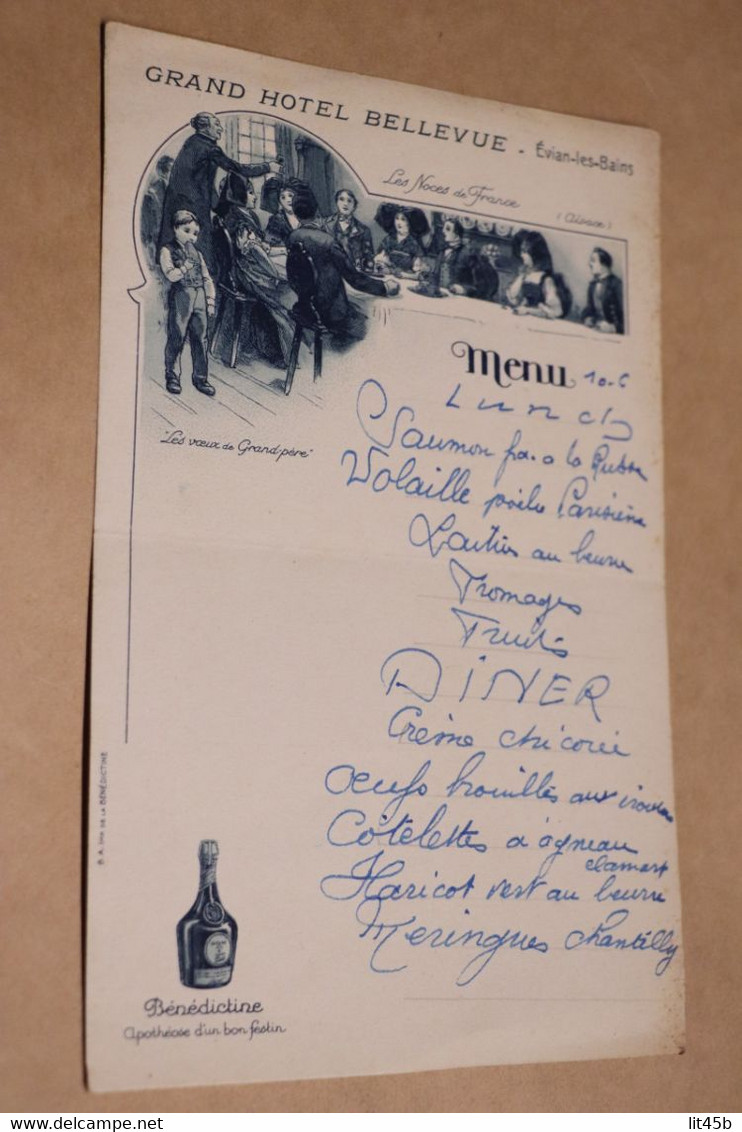 GRAND HOTEL BELLEVUE - Évian-les-Bains
Les Noces de France
(Alsace)
"Les vœux de Grand-père"
Menu 10-6
Lunch
Saumon à la Russe
Volaille poêlée Parisienne
au beurre
Fromages
Fruits
DINER
Crème chicorée
Œufs brouillés aux
Côtelettes d'agneau
clamart
Haricot vert au beurre
Meringues chantilly
B. A. Imp. DE LA BÉNÉDICTINE
Bénédictine
Apothéose d'un bon festin
lit45b